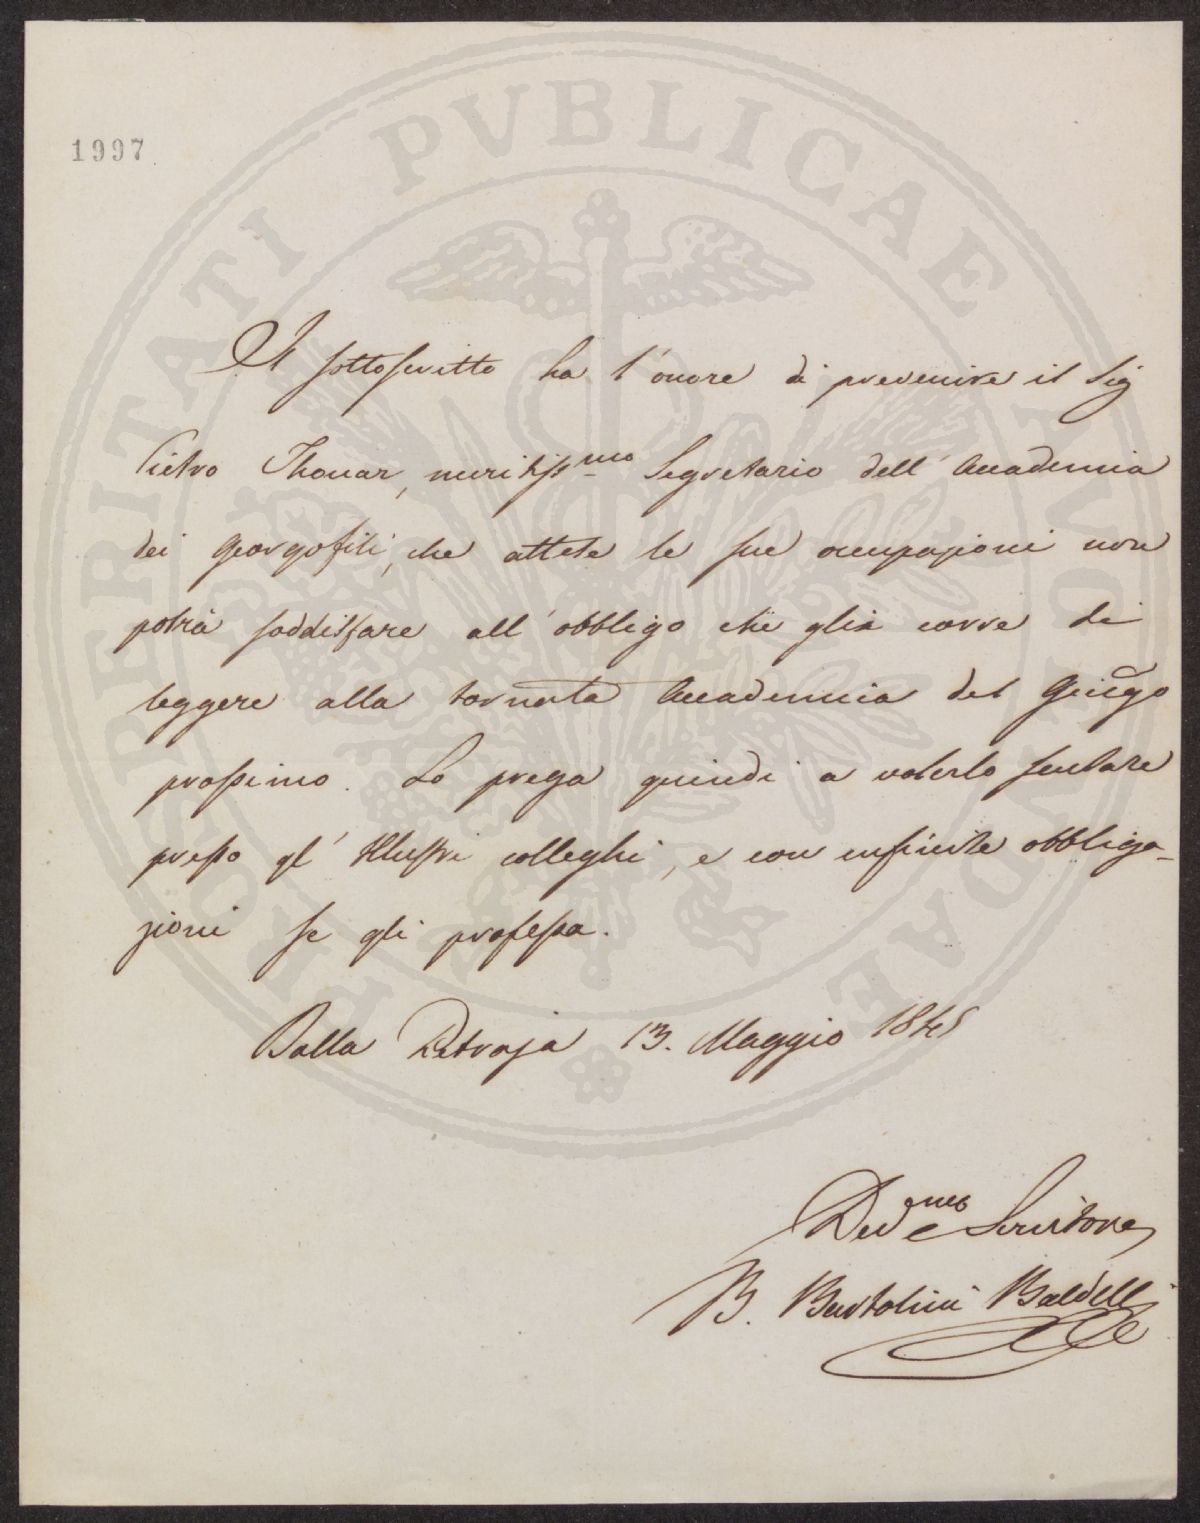 1997
PROSPERITATI PVBLICAE AVGENDAE
Il sottoscritto ha l'onore di prevenire il Sig
Pietro Thouar, meritissmo Segretario dell'Accademia
dei Georgofili, che attese le sue occupazioni non
potrà soddisfare all'obbligo che gli corre di
leggere alla tornata Accademica del Giugo
prossimo. Lo prega quindi a volerlo scusare
presso gl'Illustri colleghi, e con infinite obbliga-
zioni se gli professa.
Dalla Petraja 13. Maggio 1845
Devmo Servitore
B. Bartolini Baldelli